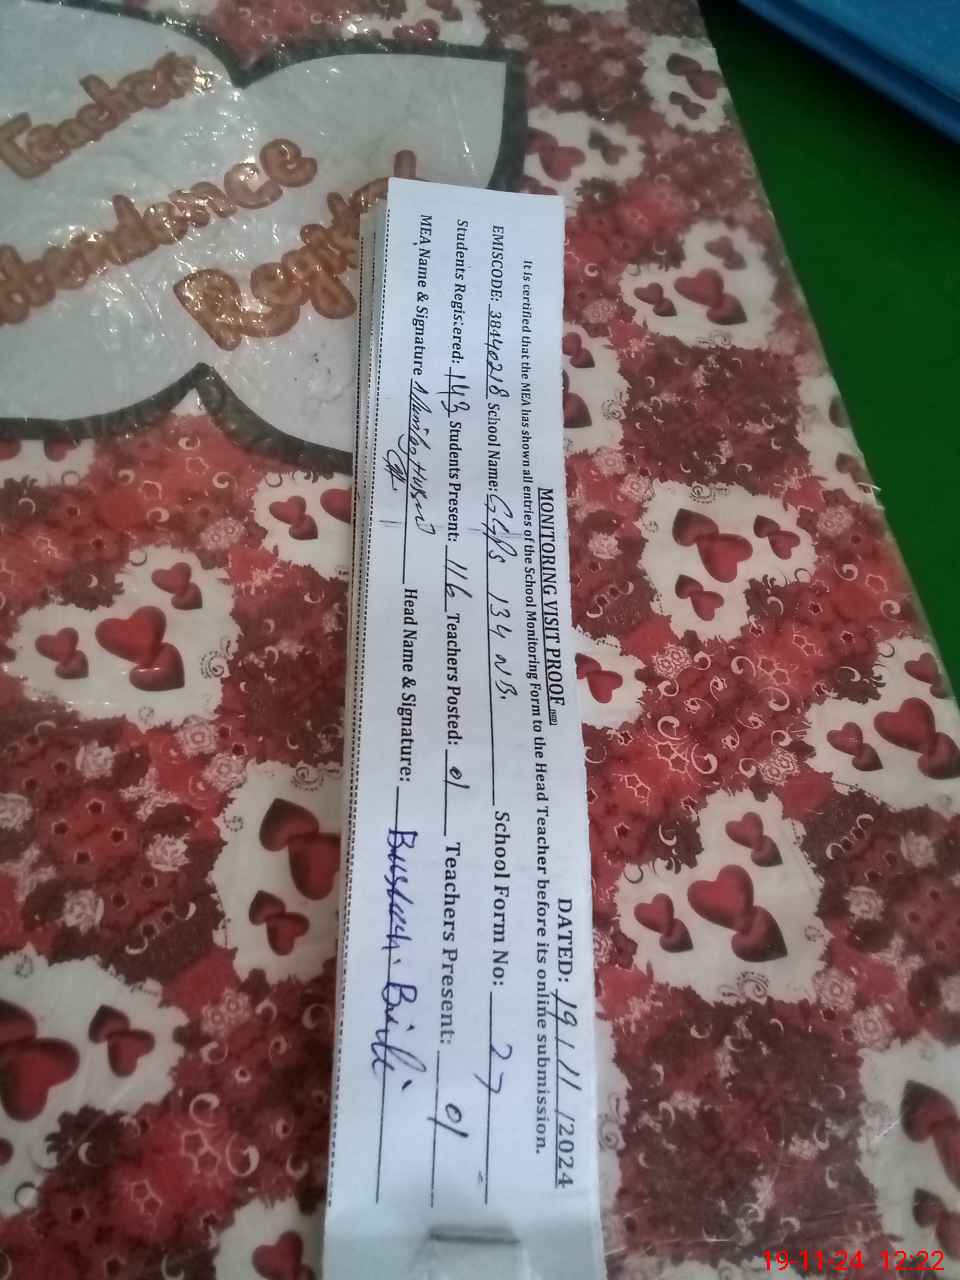 Teacher
Attendance
Register
MONITORING VISIT PROOF
DATED: 19/11/2024
It is certified that the MEA has shown all entries of the School Monitoring Form to the Head Teacher before its online submission.
EMISCODE: 38440218 School Name: GGPS 134 NB. School Form No: 27
Students Registered: 143 Students Present: 116 Teachers Posted: 01 Teachers Present: 01
MEA Name & Signature Head Name & Signature: Bushra Bibi
19-11-24 12:22